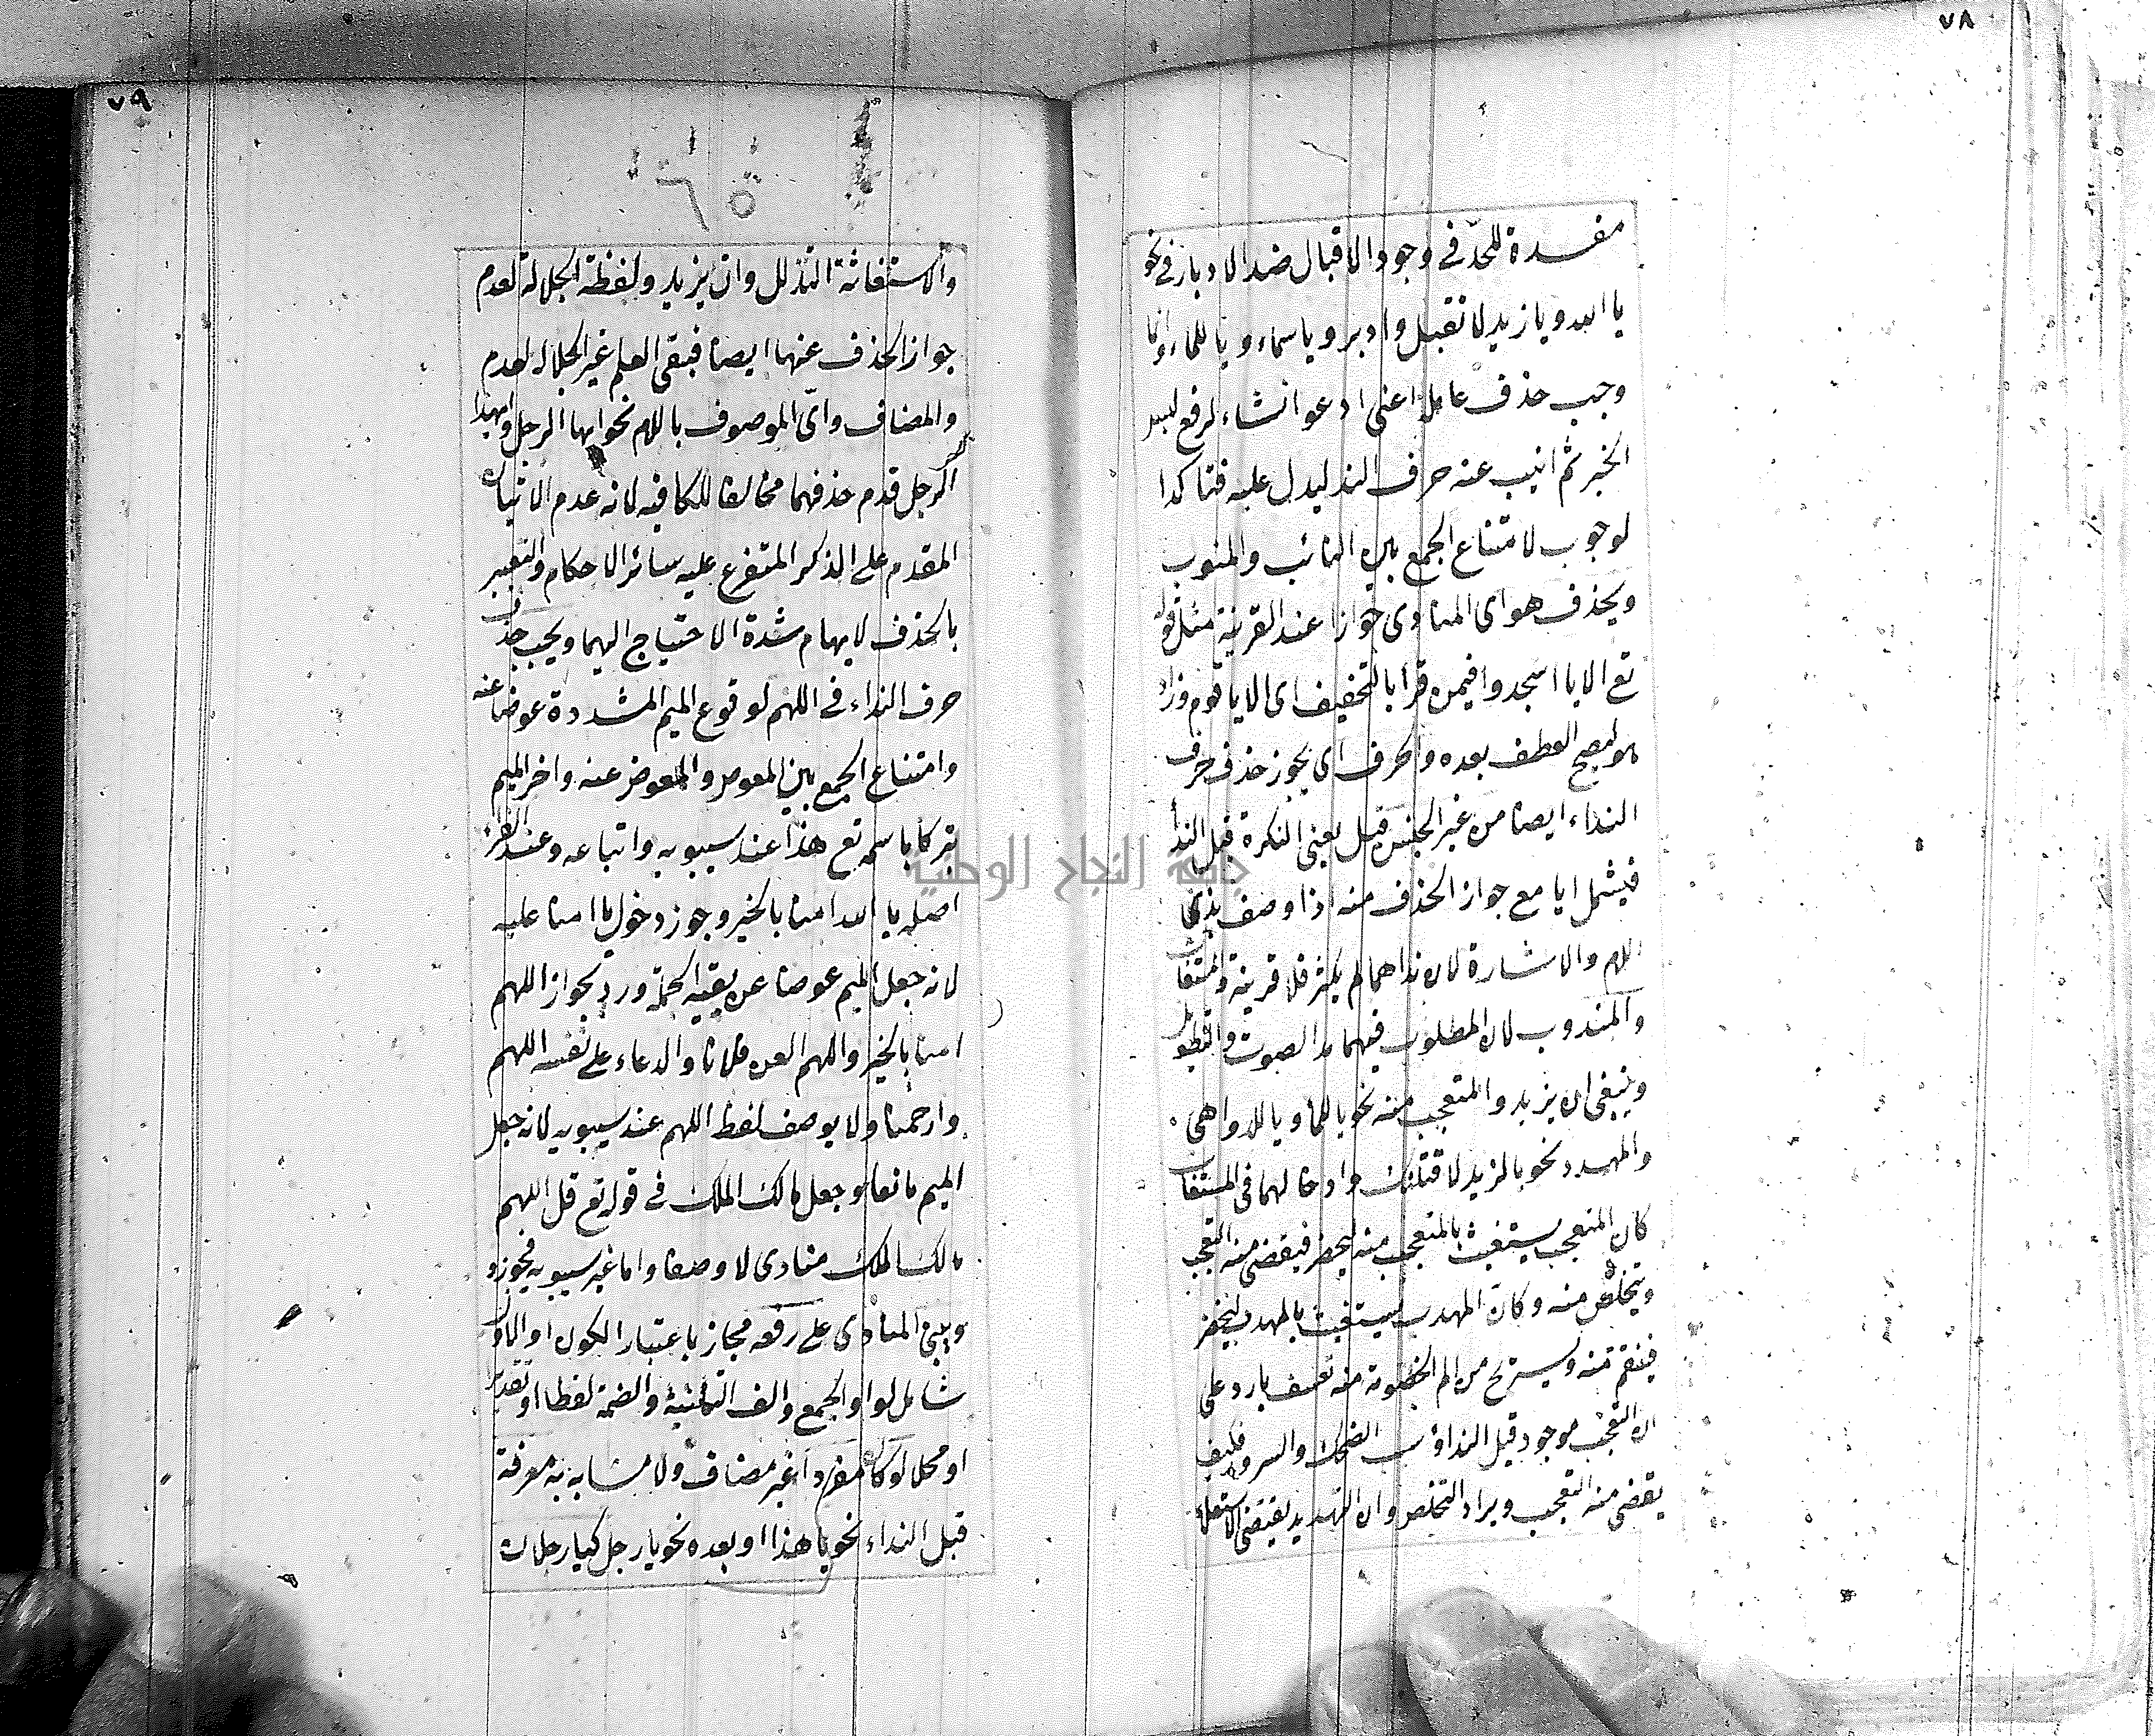 ٧٨
مفسدة للحدّ في وجود الاقبال ضد الادبار في نحو
يا الله ويا زيد لا تقبل وادبر ويا سماء ويا للماء وانما
وجب حذف عامل اعنى ادعو انشاء لرفع لبس
الخبر ثم انيب عنه حرف الندا ليدل عليه فتاكدا
لوجوب لامتناع الجمع بين النائب والمنوب
ويحذف هو اى المنادى جوازا عند القرينة مثل قوله
تع الا يا اسجدوا فيمن قرا بالتخفيف اى الا يا قوم وزاد
هو ليصح العطف بعده والحرف اى يجوز حذف حرف
النداء ايضا من غير الجنس قيل يعنى النكرة قبل الندا
فيشمل ايا مع جواز الحذف منه اذا وصف بذى
اللام والاشارة لان نداهما لم يكثر فلا قرينة والمستغاث
والمندوب لان المطلوب فيهما مد الصوت والتطويل
وينبغى ان يزيد والمتعجب منه نحو يا للماء ويا للدواهى
والمهدد نحو يا لزيد لاقتلنك وادخالهما فى المستغاث
كان المتعجب يستغيث بالمتعجب منه ليحضر فيقضى منه التعجب
ويتخلص منه وكان المهدد يستغيث بالمهدد ليحضر
فينتقم منه ويستريح من الم الخصومة منه تعسف بارد على
ان التعجب موجود قبل الندا والضحك والسرور فكيف
يقضى منه التعجب ويراد التخلص وان التهديد يقتضى الاستعلاء
٧٩
٦٥
والاستغاثة التذلل وان يزيد ولفظة الجلالة لعدم
جواز الحذف عنها ايضا فبقى العلم غير الجلالة لعدم
والمضاف واىّ الموصوف باللام نحو ايها الرجل وايهذا
الرجل قدم حذفهما مخالفا للكافيه لانه عدم الاتيان
المقدم على الذكر المتفرع عليه سائر الاحكام والتعبير
بالحذف لايهام شدة الاحتياج اليهما ويجب حذف
حرف النداء فى اللهم لوقوع الميم المشددة عوضا عنه
وامتناع الجمع بين العوض والمعوض عنه واخر الميم
تبركا باسمه تع هذا عند سيبويه واتباعه وعند الفراء
اصله يا الله امنا بالخير وجوز دخول يا امنا عليه
لانه جعل الميم عوضا عن بقية الجملة ورد بجواز اللهم
امنا بالخير واللهم العن فلانا والدعاء على نفسه اللهم
وارحمنا ولا يوصف لفظ اللهم عند سيبويه لانه جعل
الميم مانعا وجعل مالك الملك فى قوله تع قل اللهم
مالك الملك منادى لا وصفا واما غير سيبويه فيجوزه
ويبنى المنادى على رفعه مجاز باعتبار الكون او الاول
شامل لواو الجمع والف التثنية والضمة لفظا او تقديرا
او محلا لو كان مفردا غير مضاف ولا مشابه به معرفة
قبل النداء نحو يا هذا او بعده نحو يا رجل كيا رجلان
جامعة النجاح الوطنية